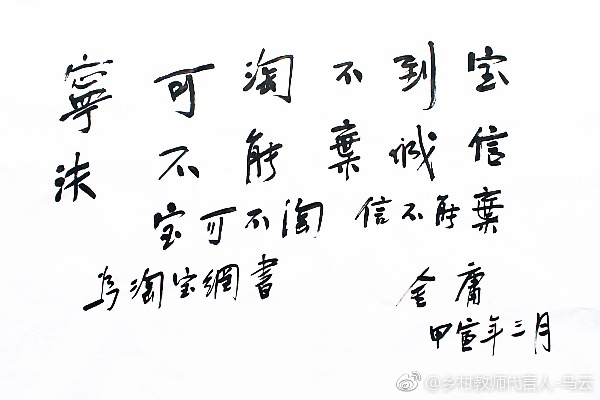 寧可淘不到宝
决不能棄誠信
宝可不淘 信不能棄
為淘宝網書
金庸
甲年三月
@乡村教师代言人-马云